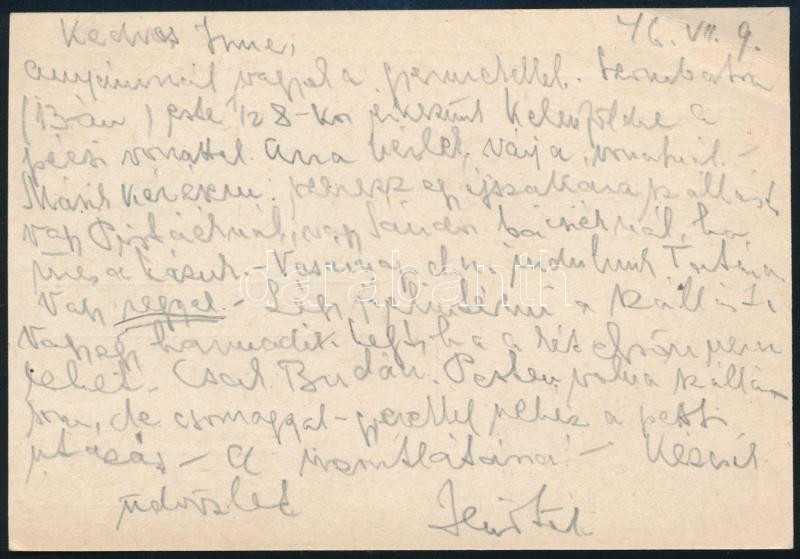 Kedves Imre, 46. VII. 9.
anyámnál vagyok a gyermekekkel. Szombaton
(13-án) este 1/2 8-kor érkezünk Kelenföldre a
pécsi vonattal. Arra kérlek, várj a vonatnál. –
Másik kérésem: szerezz egy éjszakára szállást
vagy Pistáéknál, vagy Sándor bácsiéknál, ha
üres a házuk. – Vasárnap indulunk Tatára
vagy reggel –
vagy egy harmadik helyt, ha a két elsőn nem
lehet. Csak Budán. Pesten volna szállá-
som, de csomaggal – gyerekkel nehéz a pesti
utazás – A viszontlátásra! – Kézcsók
üdvözlet
darabanth